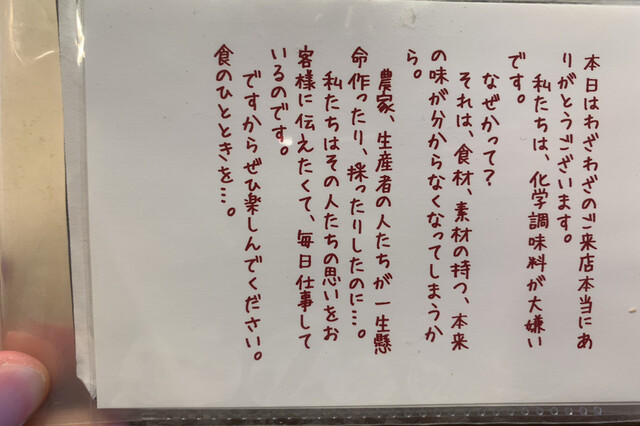 本日はわざわざのご来店本当にあ
りがとうございます。
私たちは、化学調味料が大嫌い
です。
なぜかって?
それは、食材、素材の持つ、本来
の味が分からなくなってしまうか
ら。
農家、生産者の人たちが一生懸
命作ったり、採ったりしたのに…。
私たちはその人たちの思いをお
客様に伝えたくて、毎日仕事して
いるのです。
ですからぜひ楽しんでください。
食のひとときを…。